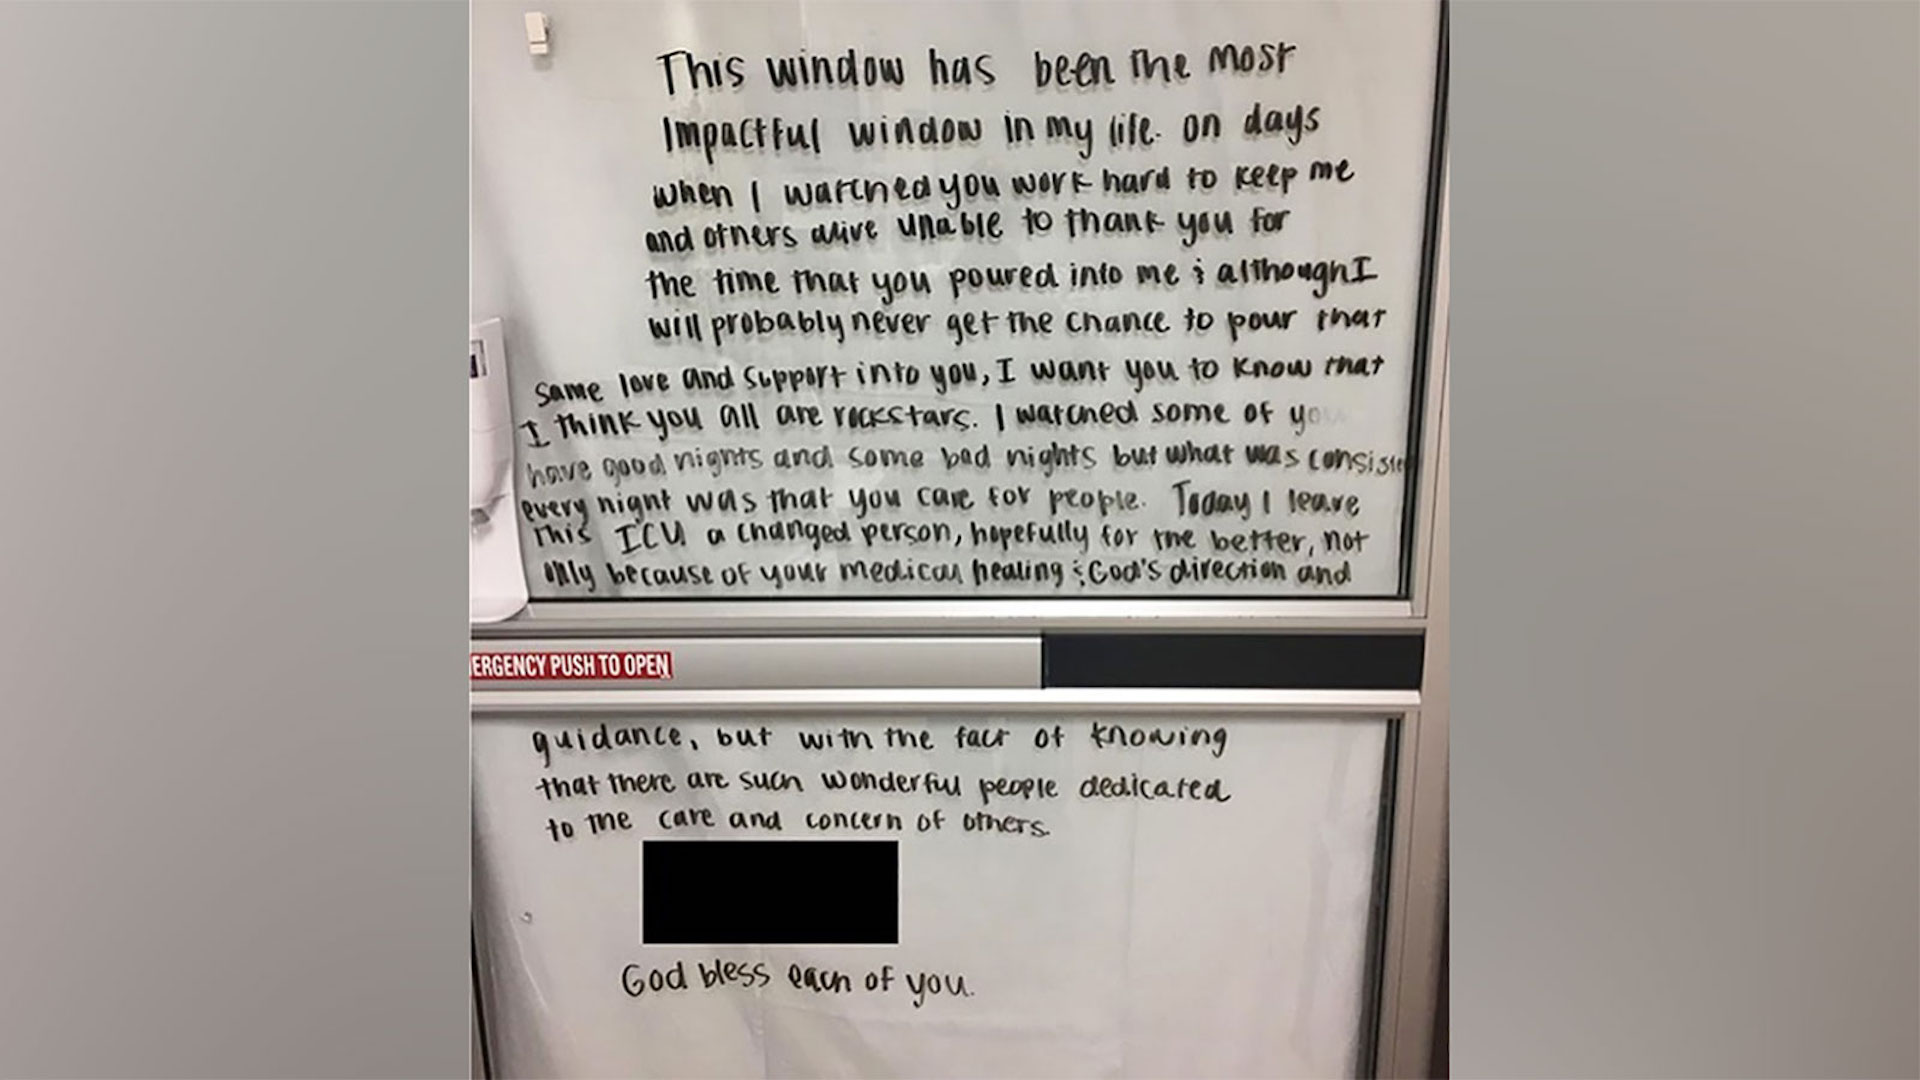 This window has been the most
Impactful window in my life. on days
when I watched you work hard to keep me
and others alive unable to thank you for
the time that you poured into me & although I
will probably never get the chance to pour that
same love and support into you, I want you to know that
I think you all are rockstars. I watched some of you
have good nights and some bad nights but what was consiste
every night was that you care for people. Today I leave
this ICU a changed person, hopefully for the better, not
only because of your medical healing & God's direction and
ERGENCY PUSH TO OPEN
guidance, but with the fact of knowing
that there are such wonderful people dedicated
to the care and concern of others.
God bless each of you.